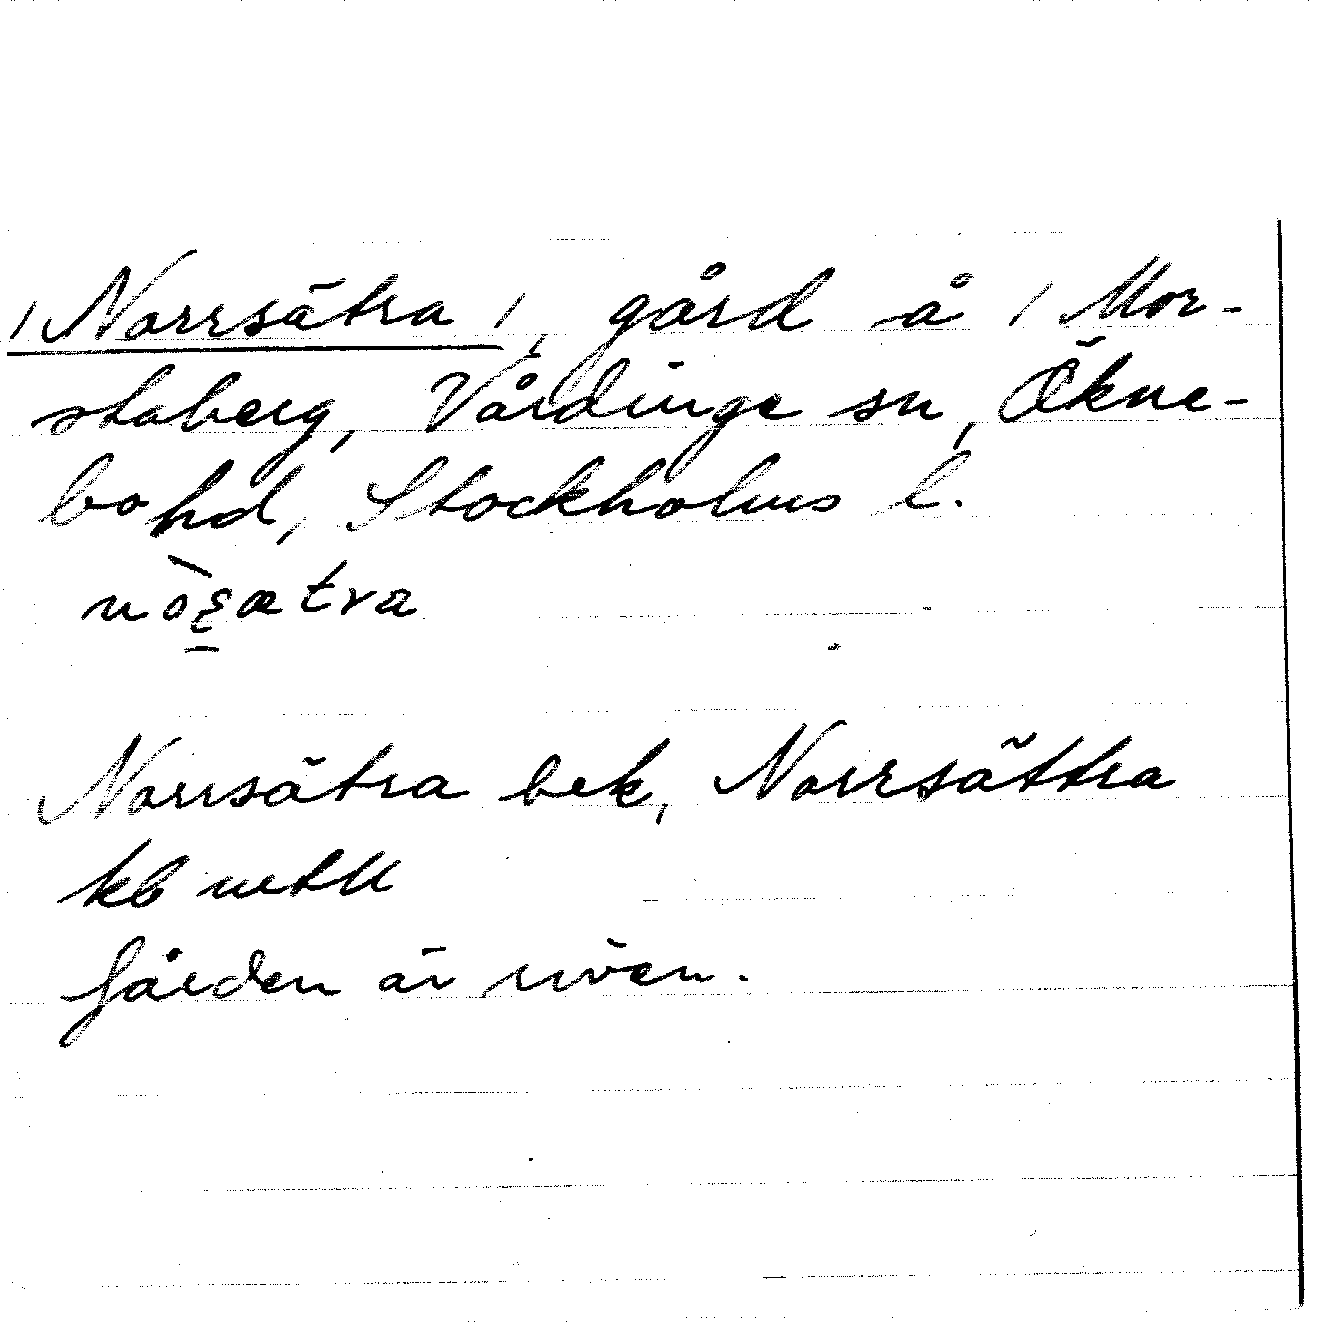 /Norrsätra/, gård å / Mor-
staberg, Vårdinge sn, Ökne-
bo hd, Stockholms l.
Norrsätra bek, Norrsättra
kb uttl
Gården är riven.